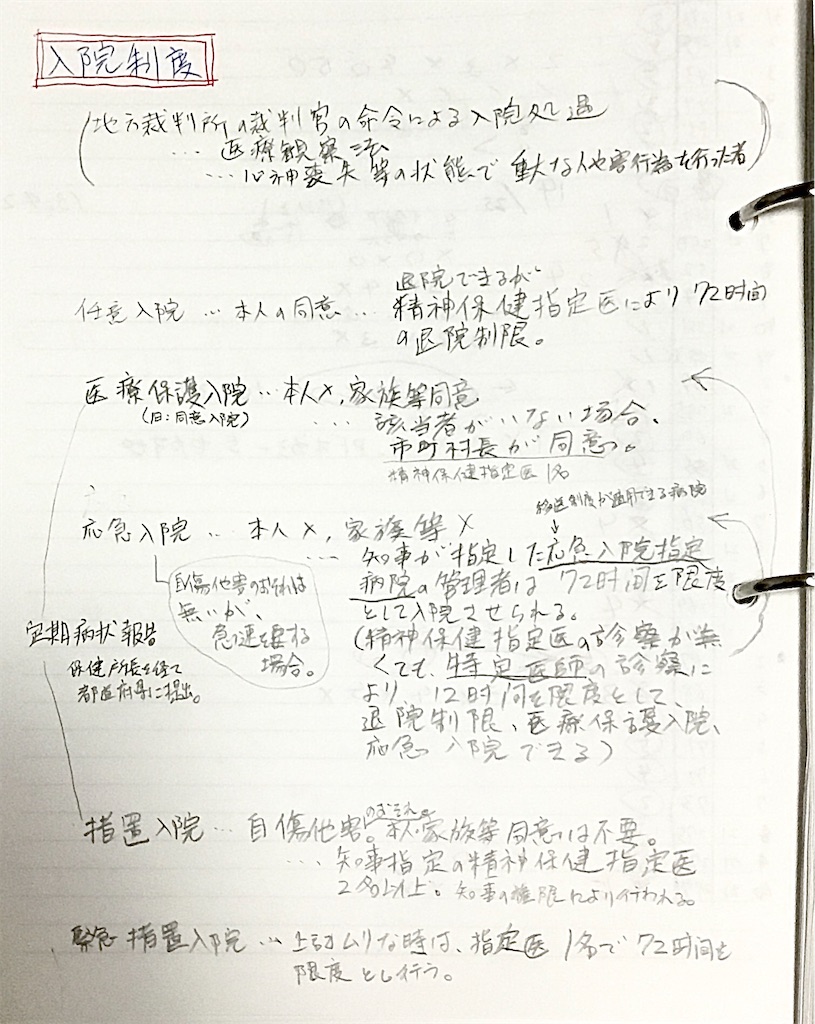 入院制度
(地方裁判所の裁判官の命令による入院処遇
… 医療観察法
… 心神喪失等の状態で重大な他害行為を行った者)
任意入院 … 本人の同意 … 退院できるが
精神保健指定医により72時間
の退院制限。
医療保護入院 … 本人×, 家族等同意
(旧:同意入院)
… 該当者がいない場合、
市町村長が同意。
精神保健指定医 1名
応急入院 … 本人×, 家族等×
制度が適用できる病院
↓
… 知事が指定した応急入院指定
病院の管理者は72時間を限度
として入院させられる。
(精神保健指定医の診察が無
くても、特定医師の診察に
より、12時間を限度として、
退院制限、医療保護入院、
応急入院できる)
自傷他害のおそれは
無いが、
急速を要する
場合。
定期病状報告
保健所長を経て
都道府県に提出。
措置入院 … 自傷他害のおそれ。本人・家族等同意は不要。
… 知事指定の精神保健指定医
2名以上。知事の権限により行われる。
緊急措置入院 … 上記ムリな時は、指定医1名で72時間を
限度とし行う。